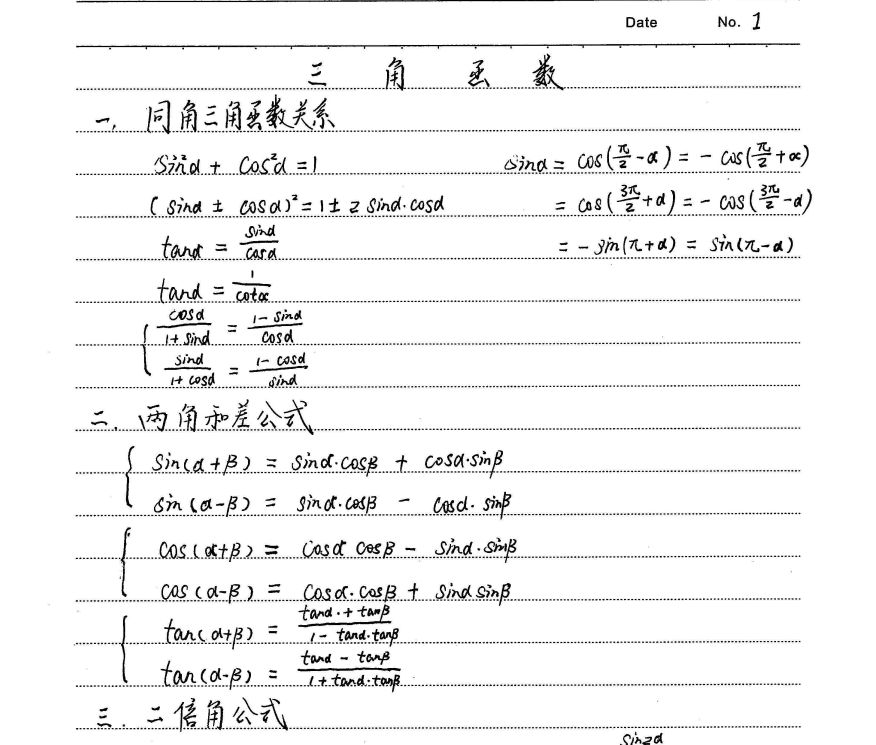 Date No. 1
三角函数
一. 同角三角函数关系
sin²α + cos²α = 1
sinα = cos(π/2 - α) = - cos(π/2 + α)
(sinα ± cosα)² = 1 ± 2 sinα·cosα
= cos(3π/2 + α) = - cos(3π/2 - α)
tanα = sinα/cosα
= - sin(π+α) = sin(π-α)
tanα = 1/cotα
cosα/(1+sinα) = (1-sinα)/cosα
sinα/(1+cosα) = (1-cosα)/sinα
二. 两角和差公式
sin(α+β) = sinα·cosβ + cosα·sinβ
sin(α-β) = sinα·cosβ - cosα·sinβ
cos(α+β) = cosα cosβ - sinα·sinβ
cos(α-β) = cosα·cosβ + sinα sinβ
tan(α+β) = (tanα·+tanβ)/(1-tanα·tanβ)
tan(α-β) = (tanα-tanβ)/(1+tanα·tanβ)
三. 二倍角公式
sin2α